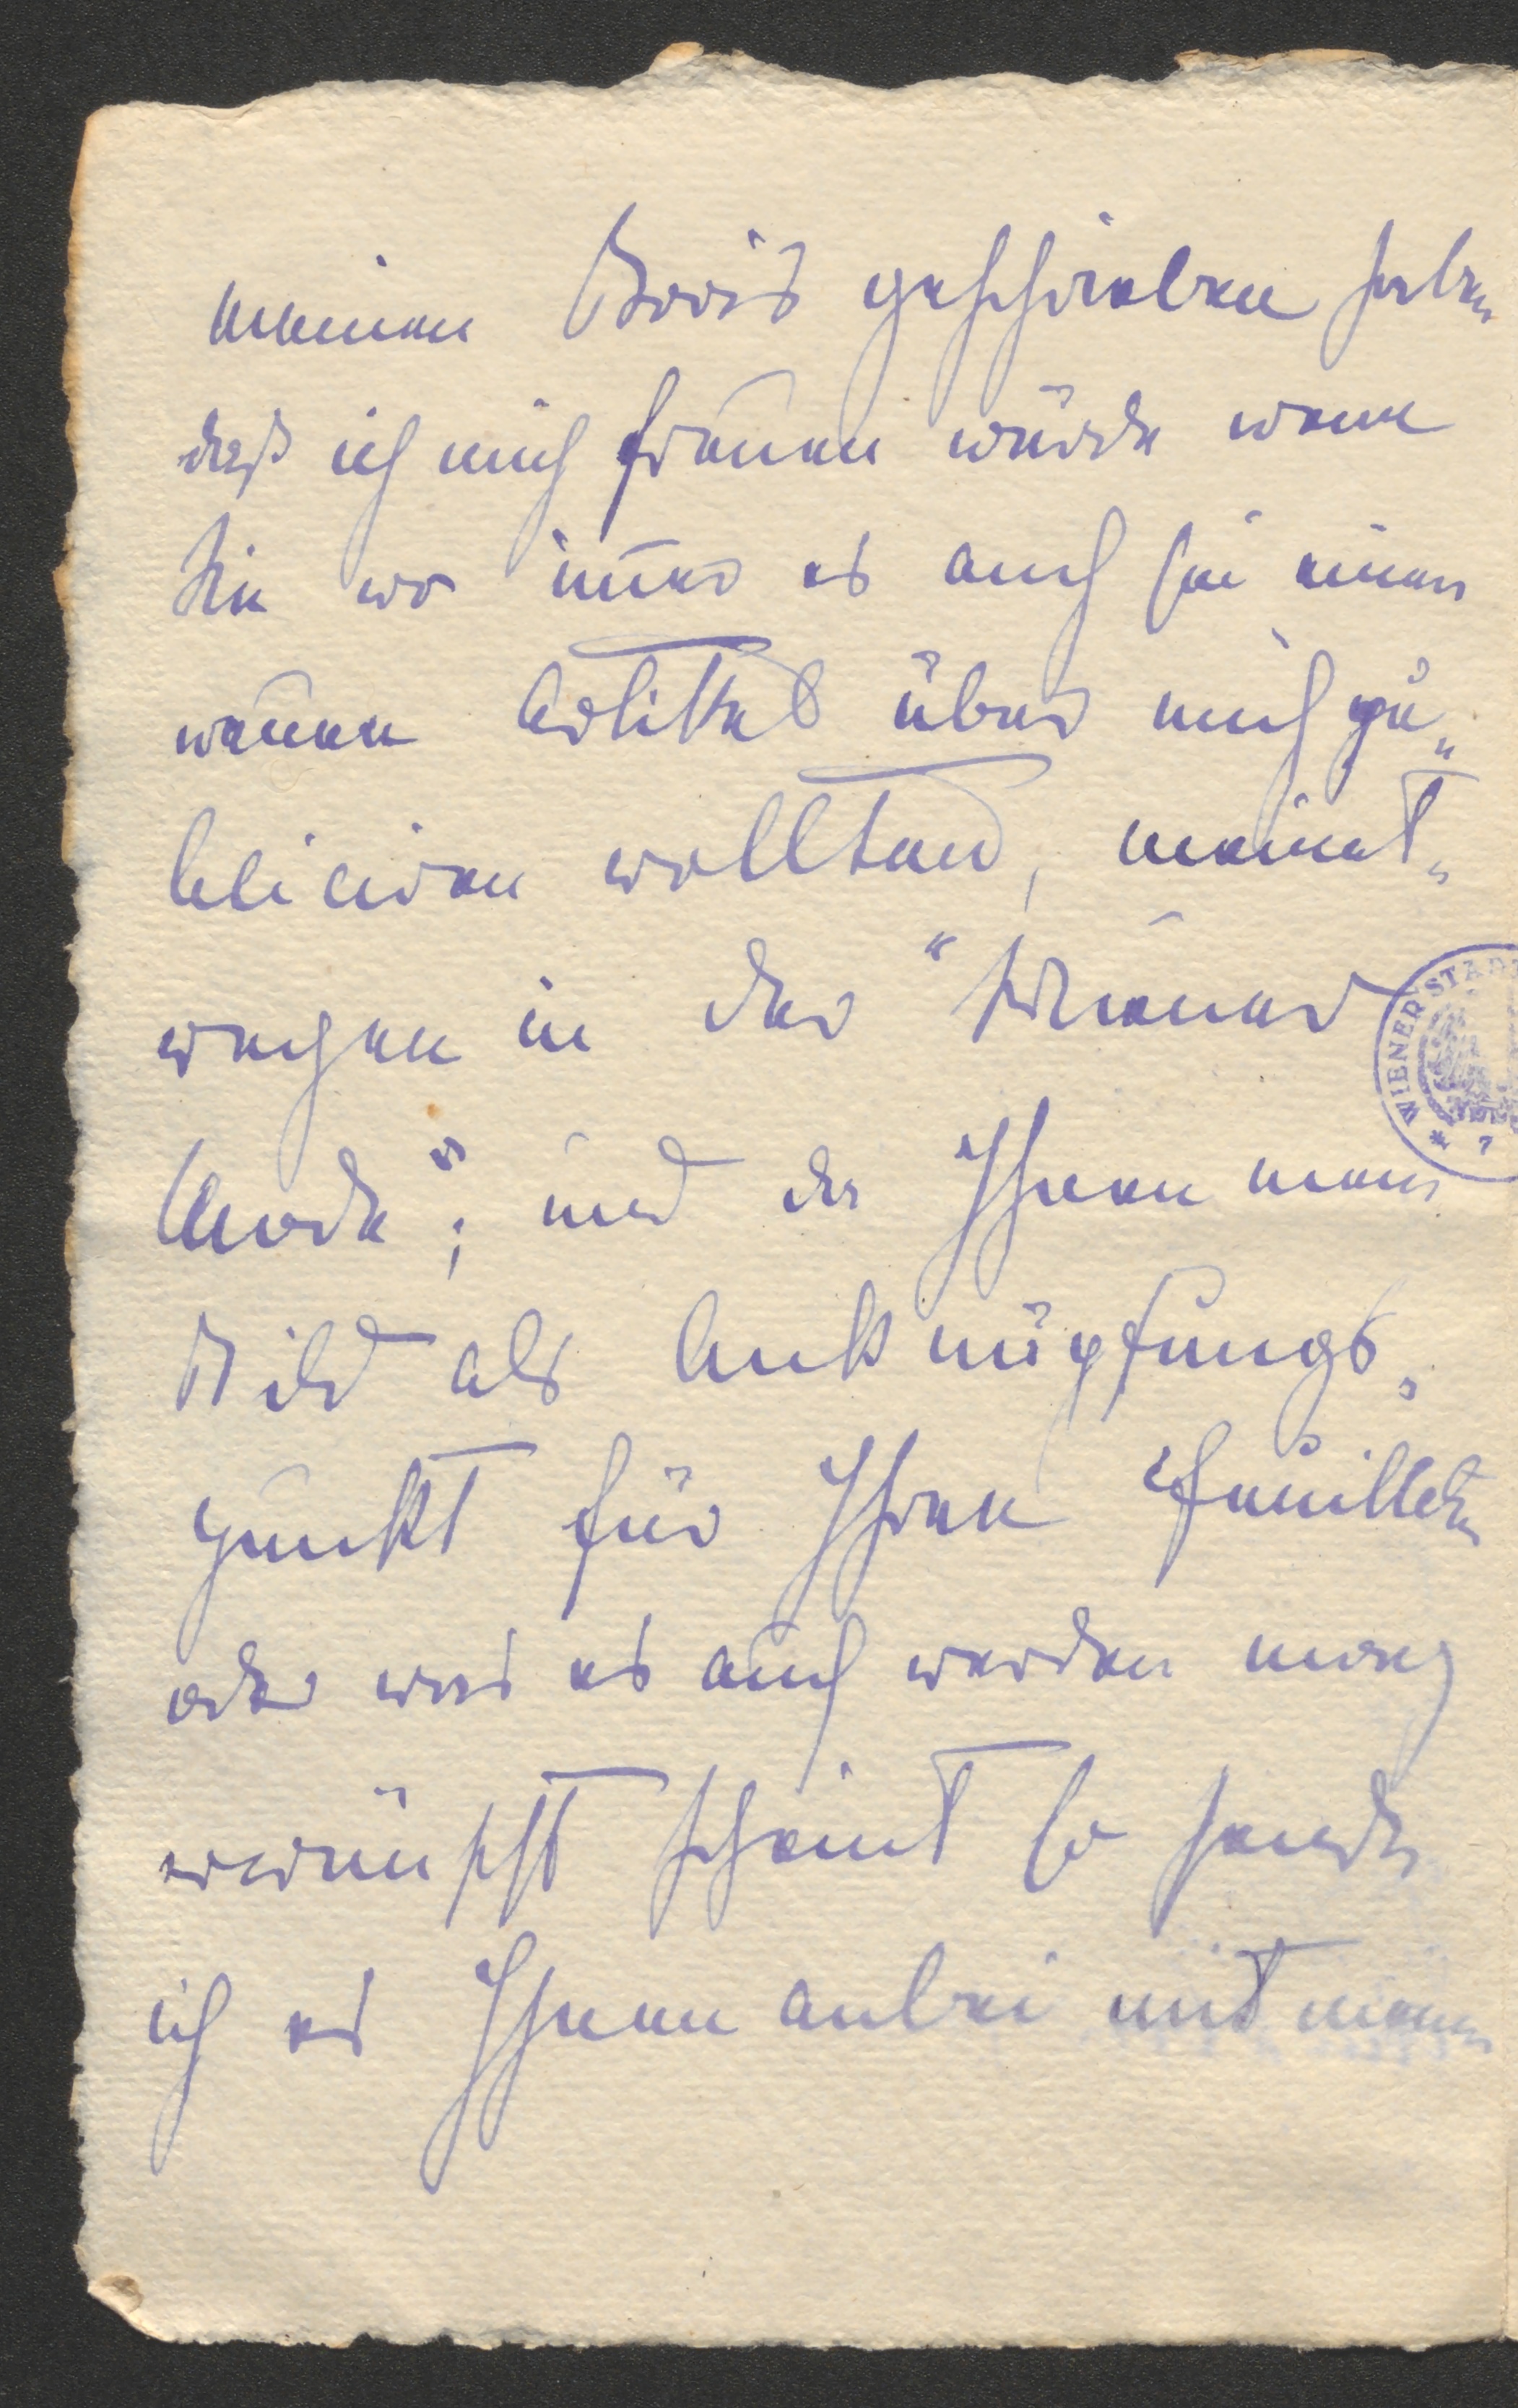 meinen Brief geschrieben haben
daß ich mich freuen würde wenn
Sie wo im̅er es auch sei einen
neuen Artikel über mich pu„
bliciren wollten, meinet„
wegen in der "Wiener
Mode"; und da Ihnen mein
Bild als Anknüpfungs„
punkt für Ihren Feuilleton
oder was es auch werden mag
erwünscht scheint so sende
ich es Ihnen anbei mit meinen
WIENER STADT
* 7